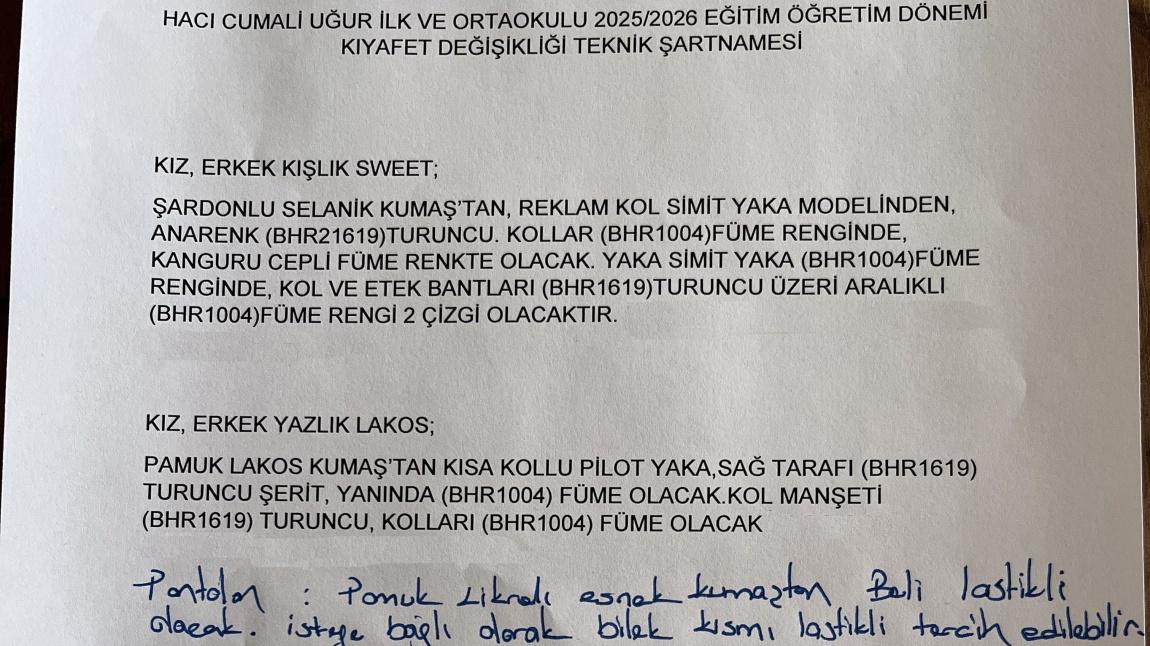 HACI CUMALİ UĞUR İLK VE ORTAOKULU 2025/2026 EĞİTİM ÖĞRETİM DÖNEMİ
KIYAFET DEĞİŞİKLİĞİ TEKNİK ŞARTNAMESİ
KIZ, ERKEK KIŞLIK SWEET;
ŞARDONLU SELANİK KUMAŞ'TAN, REKLAM KOL SİMİT YAKA MODELİNDEN,
ANARENK (BHR21619)TURUNCU. KOLLAR (BHR1004)FÜME RENGİNDE,
KANGURU CEPLİ FÜME RENKTE OLACAK. YAKA SİMİT YAKA (BHR1004)FÜME
RENGİNDE, KOL VE ETEK BANTLARI (BHR1619)TURUNCU ÜZERİ ARALIKLI
(BHR1004)FÜME RENGİ 2 ÇİZGİ OLACAKTIR.
KIZ, ERKEK YAZLIK LAKOS;
PAMUK LAKOS KUMAŞ'TAN KISA KOLLU PİLOT YAKA,SAĞ TARAFI (BHR1619)
TURUNCU ŞERİT, YANINDA (BHR1004) FÜME OLACAK.KOL MANŞETİ
(BHR1619) TURUNCU, KOLLARI (BHR1004) FÜME OLACAK
Pantolon : Pamuk Likralı esnek kumaştan Beli lastikli
olacak. isteğe bağlı olarak bilek kısmı lastikli tercih edilebilir.